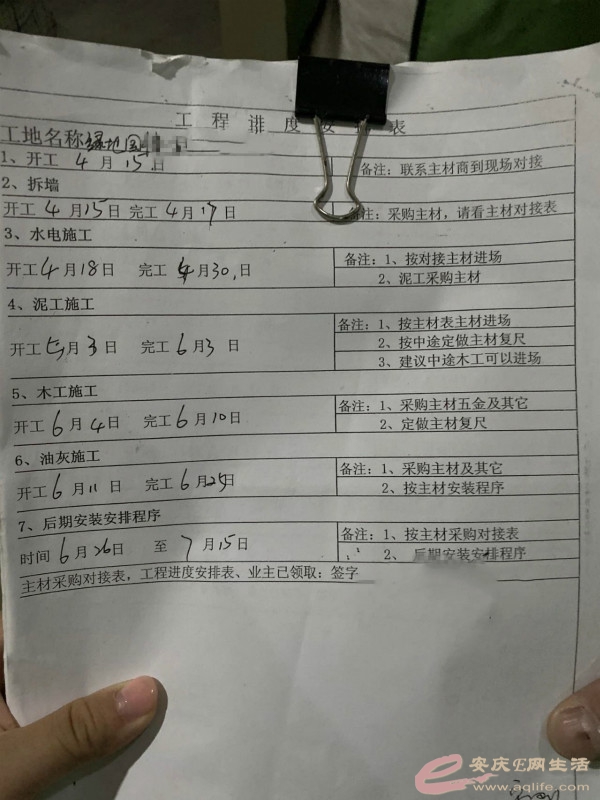 工程进度安排表
工地名称绿地国
1、开工 4月15日
备注：联系主材商到现场对接
2、拆墙
开工4月15日 完工4月17日
备注：采购主材，请看主材对接表
3、水电施工
开工4月18日 完工4月30日
备注：1、按对接主材进场
2、泥工采购主材
4、泥工施工
开工5月3日 完工6月3日
备注：1、按主材表主材进场
2、按中途定做主材复尺
3、建议中途木工可以进场
5、木工施工
开工6月4日 完工6月10日
备注：1、采购主材五金及其它
2、定做主材复尺
6、油灰施工
开工6月11日 完工6月25日
备注：1、采购主材及其它
2、按主材安装程序
7、后期安装安排程序
时间6月26日 至7月15日
备注：1、按主材采购对接表
2、后期安装安排程序
主材采购对接表，工程进度安排表、业主已领取：签字
安庆E网生活
www.aqlife.com